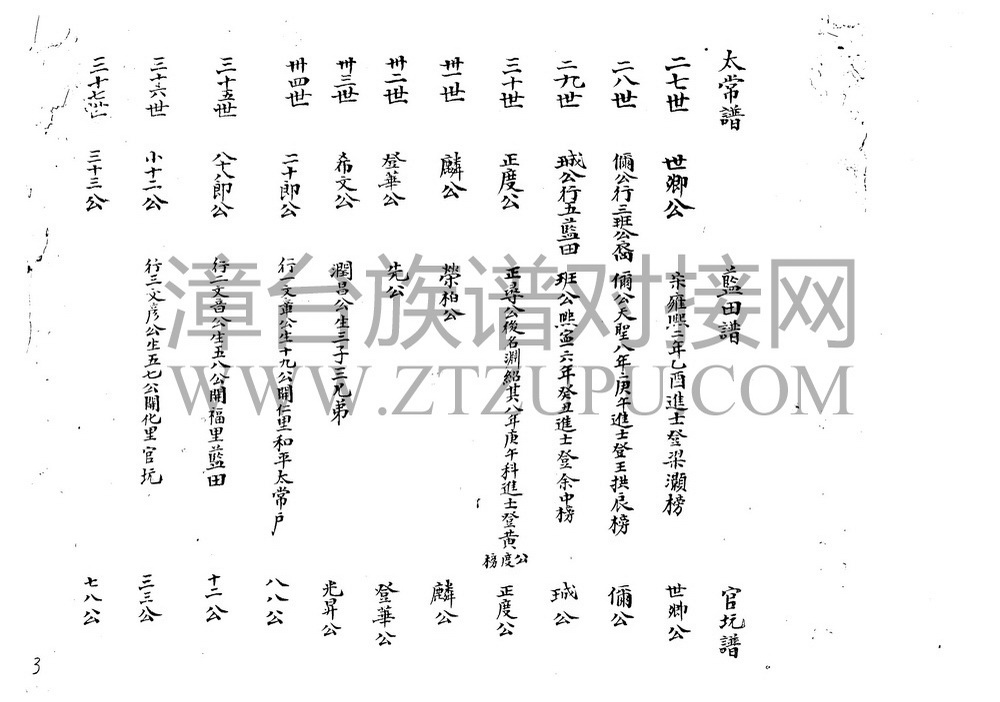 太常譜 藍田譜 官坑譜
二七世 世卿公 宋雍熙二年乙酉進士登梁灝榜 世卿公
二八世 儞公行三班公裔 儞公天聖八年庚午進士登王拱辰榜 儞公
二九世 珹公行五藍田 班公熙寧六年癸丑進士登余中榜 珹公
三十世 正度公 正尋公後名淵紹其八年庚午科進士登黃公度榜 正度公
卅一世 麟公 榮柏公 麟公
卅二世 登華公 先公 登華公
卅三世 希文公 潤昌公生三子三兄弟 兆昇公
卅四世 二十郎公 行一文章公生十九公開仁里和平太常户 八八公
三十五世 八七郎公 行二文昌公生五八公開福里藍田 十二公
三十六世 小十二公 行三文彥公生五七公開化里官坑 三三公
三十七世 三十三公 七八公
漳台族谱对接网
WWW.ZTZUPU.COM
3